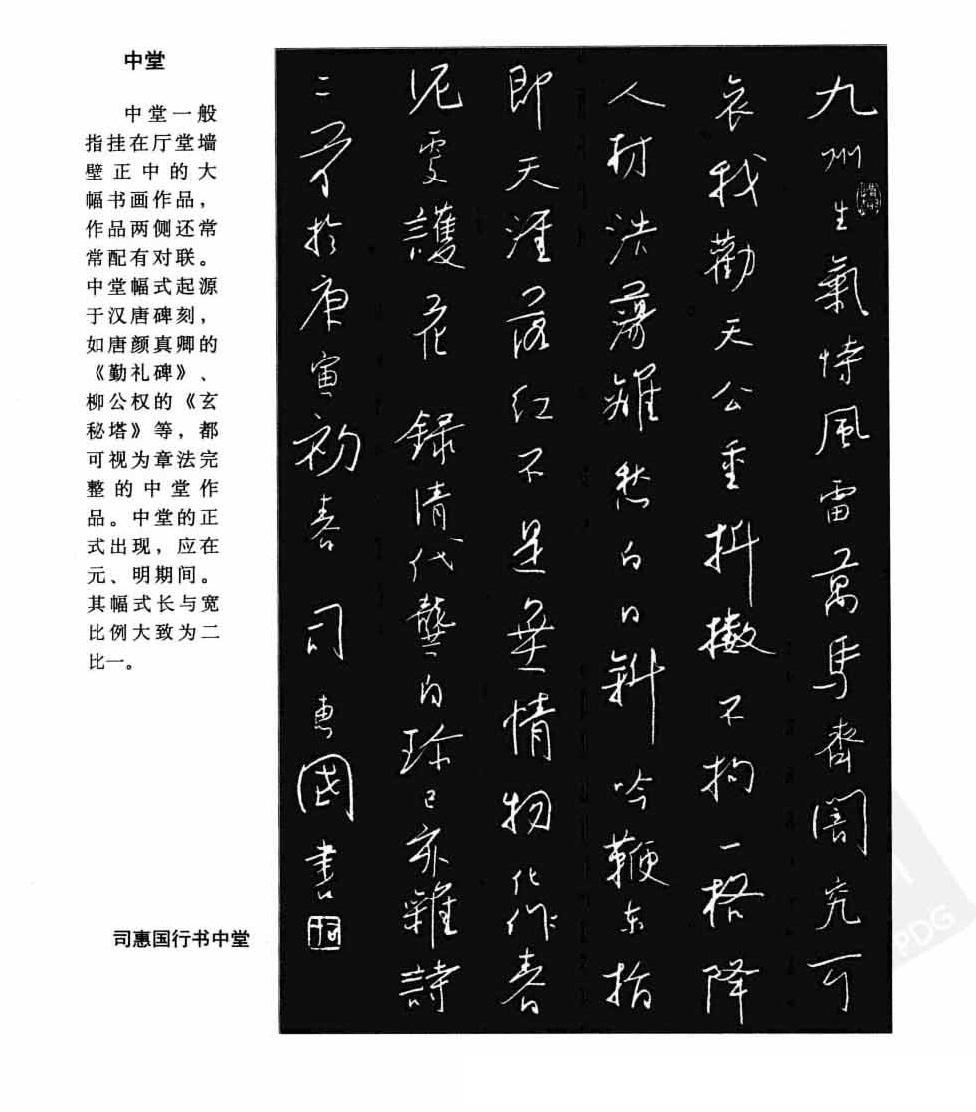 中堂
中堂一般
指挂在厅堂墙
壁正中的大
幅书画作品，
作品两侧还常
常配有对联。
中堂幅式起源
于汉唐碑刻，
如唐颜真卿的
《勤礼碑》、
柳公权的《玄
秘塔》等，都
可视为章法完
整的中堂作
品。中堂的正
式出现，应在
元、明期间。
其幅式长与宽
比例大致为二
比一。
九州生氣恃風雷萬馬齊闇究可
哀我勸天公重抖擻不拘一格降
人材浩蕩離愁白日斜吟鞭东指
即天涯落红不是無情物化作春
泥更護花 録清代龔自珍己亥雜詩
二首於庚寅初春 司惠國書
司惠国行书中堂
PDG